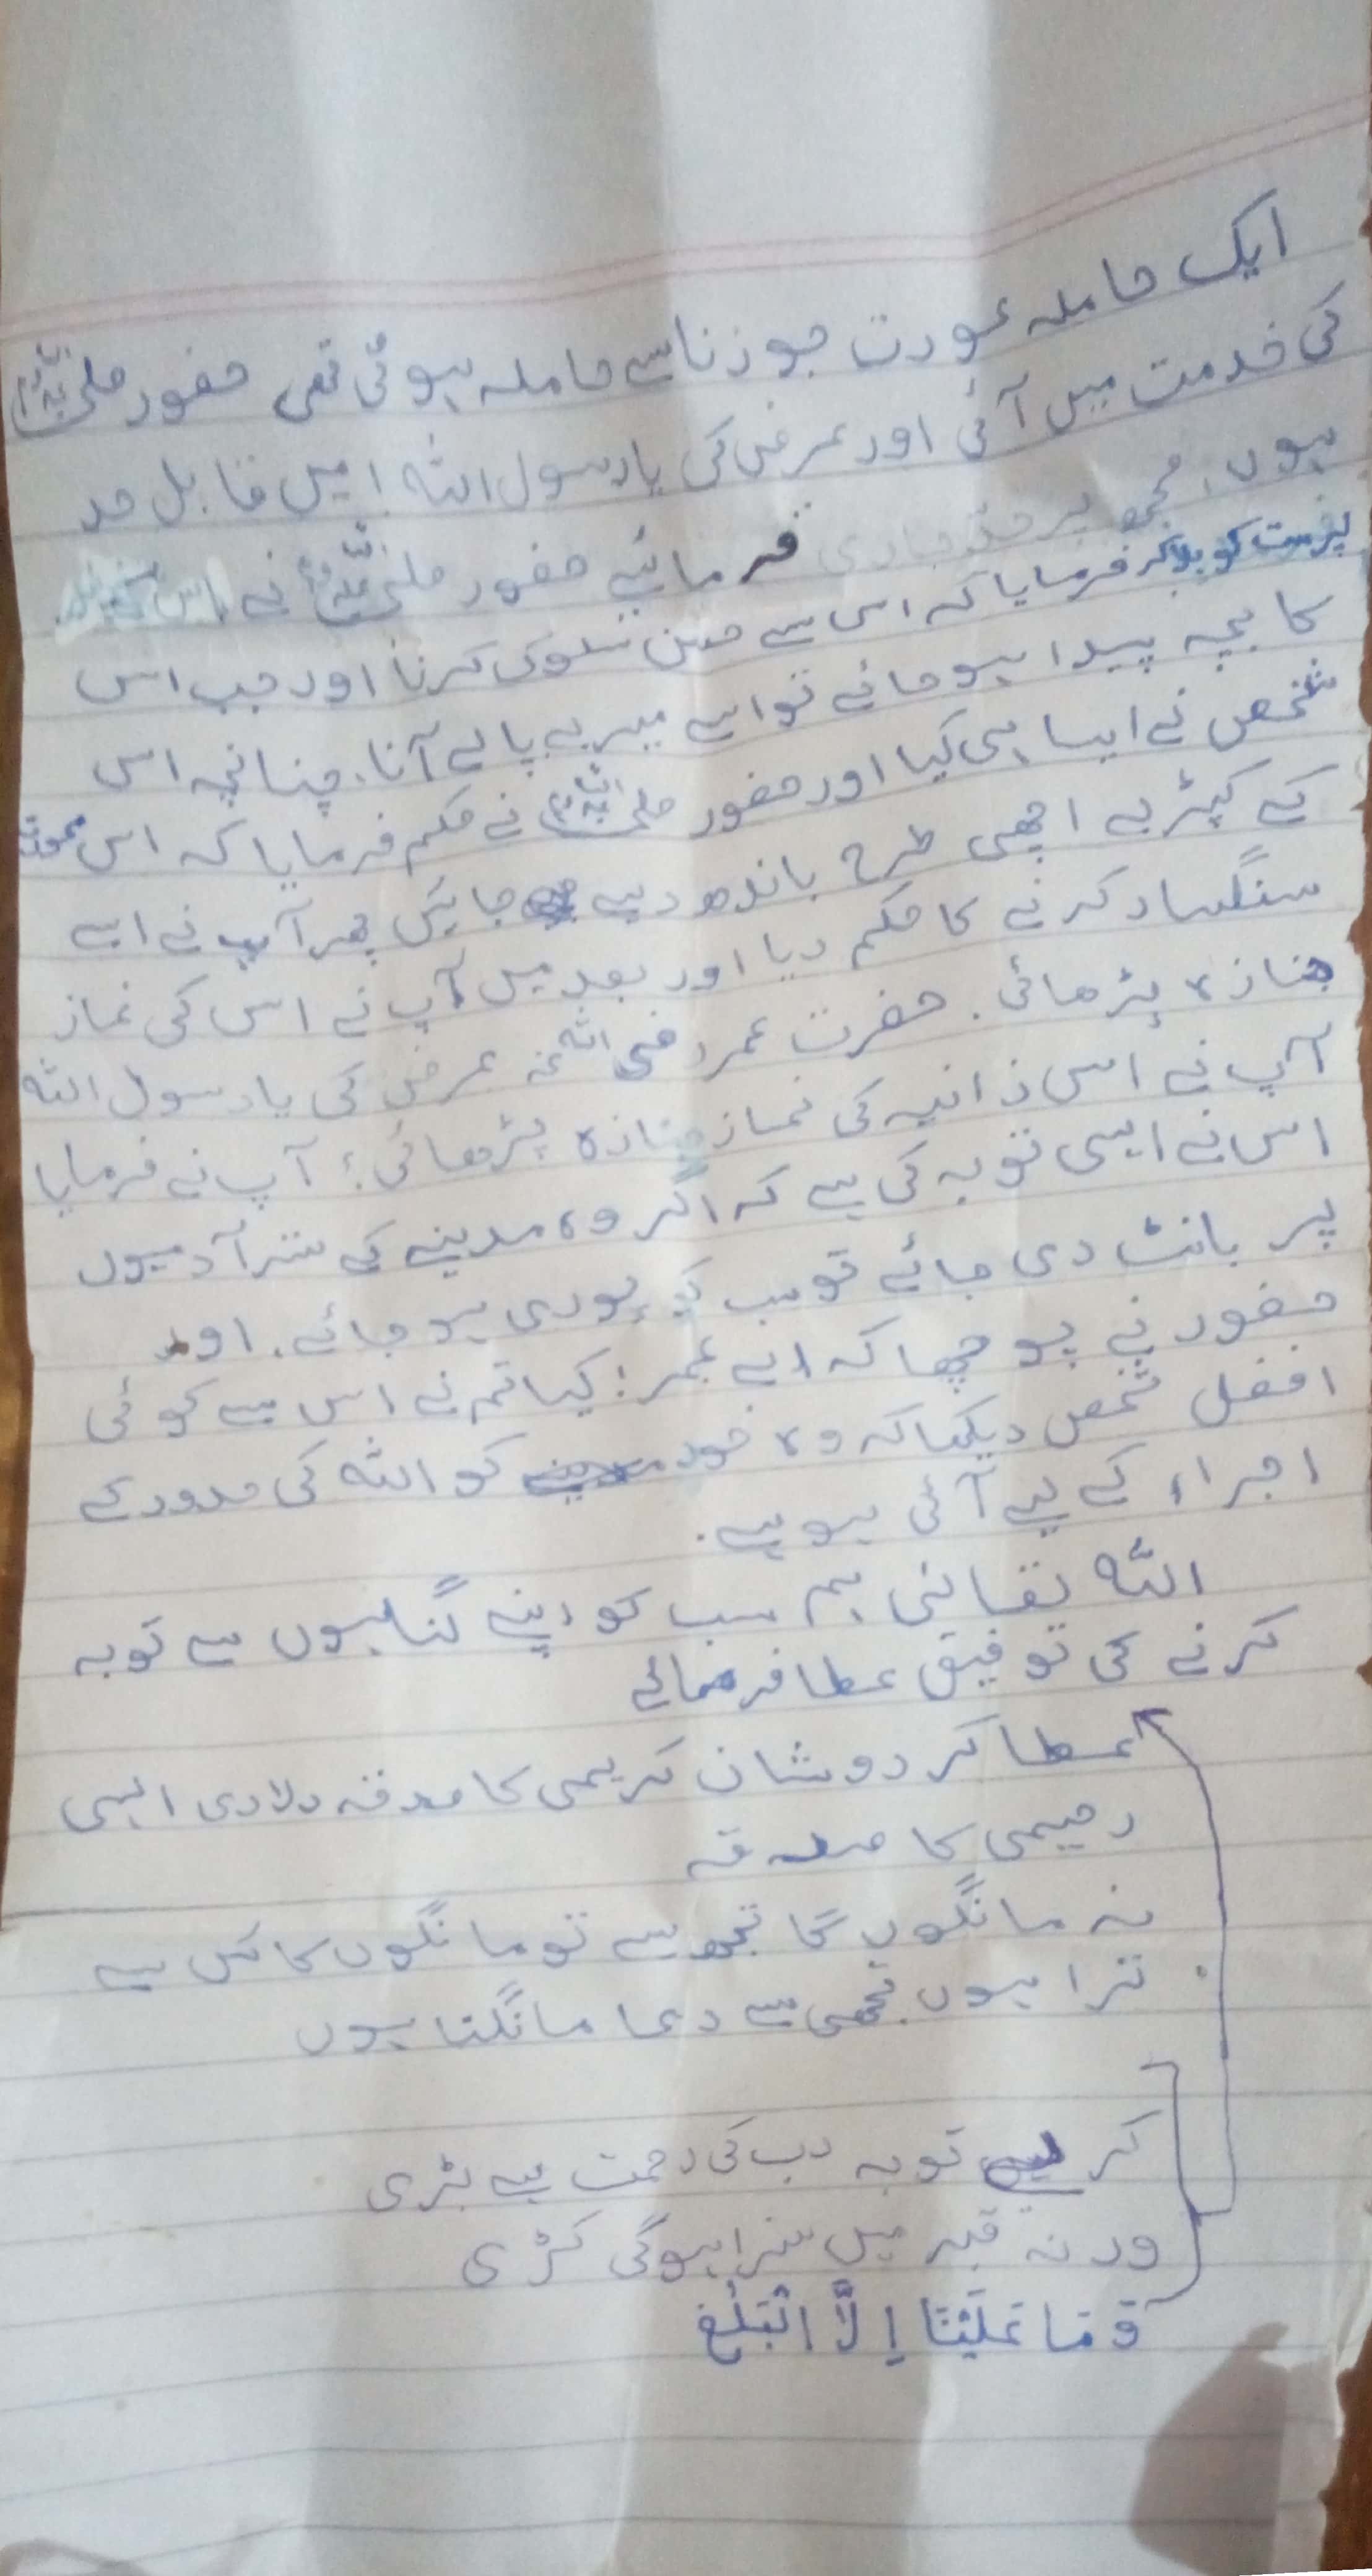 ایک حاملہ عورت جو زنا سے حاملہ ہوئی تھی حضور صلی اللہ
کی خدمت میں آئی اور عرض کی یا رسول اللہ! میں قابل حد
ہوں، مجھ پر حد جاری فرمائیے حضور صلی اللہ نے اس کے
پرست کو بلاکر فرمایا کہ اس سے حسن سلوک کرنا اور جب اس
کا بچہ پیدا ہوجائے تو اسے میرے پا لے آنا، چنانچہ اس
شخص نے ایسا ہی کیا اور حضور صلی اللہ نے حکم فرمایا کہ اس عورت
کے کپڑے اچھی طرح باندھ دیے جائیں پھر آپ نے اسے
سنگسار کرنے کا حکم دیا اور بعد میں آپ نے اس کی نماز
جنازہ پڑھائی۔ حضرت عمر رضی اللہ عنہ عرض کی یا رسول اللہ
آپ نے اس زانیہ کی نماز جنازہ پڑھائی؟ آپ نے فرمایا
اس نے ایسی توبہ کی ہے کہ اگر وہ مدینے کے ستر آدمیوں
پر بانٹ دی جائے تو سب کو پوری ہو جائے۔ اور
حضور نے پوچھا کہ اے عمر! کیا تم نے اس سے کوئی
افضل شخص دیکھا کہ وہ خود کو اللہ کی حدود کے
اجراء کے لیے آئی ہو ہے۔
اللہ تعالیٰ ہم سب کو اپنے گناہوں سے توبہ
کرنے کی توفیق عطا فرمائے
عطا کر دو شان کریمی کا صدقہ دلا دی الہی
رحیمی کا صدقہ
نہ مانگوں گا تجھ سے تو مانگوں گا کس سے
ترا ہوں تجھی سے دعا مانگتا ہوں
کر لے توبہ رب کی رحمت ہے بڑی
ورنہ قبر میں سزا ہوگی کڑی
وَمَا عَلَيْنَا اِلَّا الْبَلٰغ